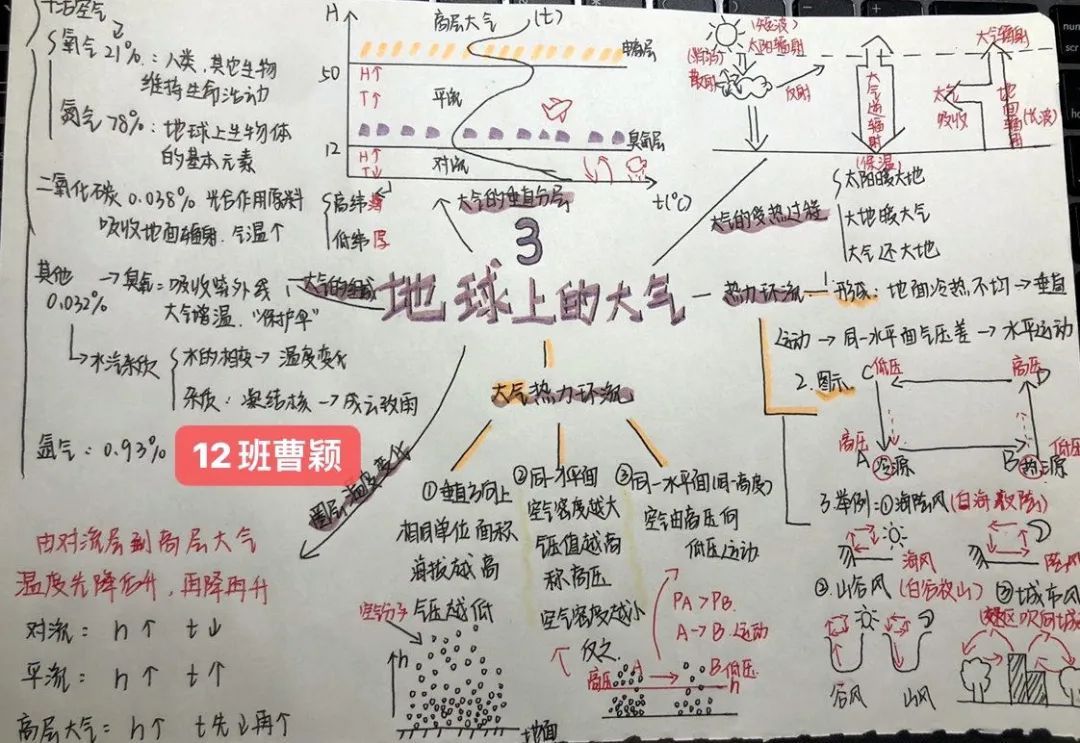 干洁空气
氧气21%:人类,其它生物
维持生命活动
氮气78%:地球上生物体
的基本元素
二氧化碳0.038% 光合作用原料
吸收地面辐射.气温↑
其他
0.032%
→臭氧:吸收紫外线
大气增温."保护伞"
水汽杂质
水的相变→温度变化
杂质:凝结核→成云致雨
氩气:0.93%
12班曹颖
大气的组成
H
高层大气
(t)
电离层
50
H↑
T↑
平流
臭氧层
12
H↑
T↓
对流
t(℃)
高纬薄
低纬厚
大气的垂直分层
(短波)
太阳辐射
(削弱)
散射
反射
大气逆辐射
(保温)
大气辐射
大气
吸收
地面辐射
(长波)
大气的受热过程
太阳暖大地
大地暖大气
大气还大地
3
地球上的大气
热力环流
1.形成:地面冷热不均→垂直
运动→同一水平面气压差→水平运动
2.图示
C低压
高压D
高压
A
冷源
低压
B
热源
3.举例:①海陆风(白海夜陆)
海风
陆风
②山谷风(白谷夜山)
谷风
山风
③城市风
(郊区吹向城
大气热力环流
①垂直方向上
相同单位面积
海拔越高
气压越低
空气分子
h
地面
②同一水平面
空气密度越大
气压值越高
称高压
空气密度越小
反之.
③同一水平面(同一高度)
空气由高压向
低压运动
PA>PB.
A→B.运动
高压
A
B低压
h
圈层温度变化
由对流层到高层大气
温度先降后升,再降再升
对流: h↑ t↓
平流: h↑ t↑
高层大气: h↑ t先↓再↑